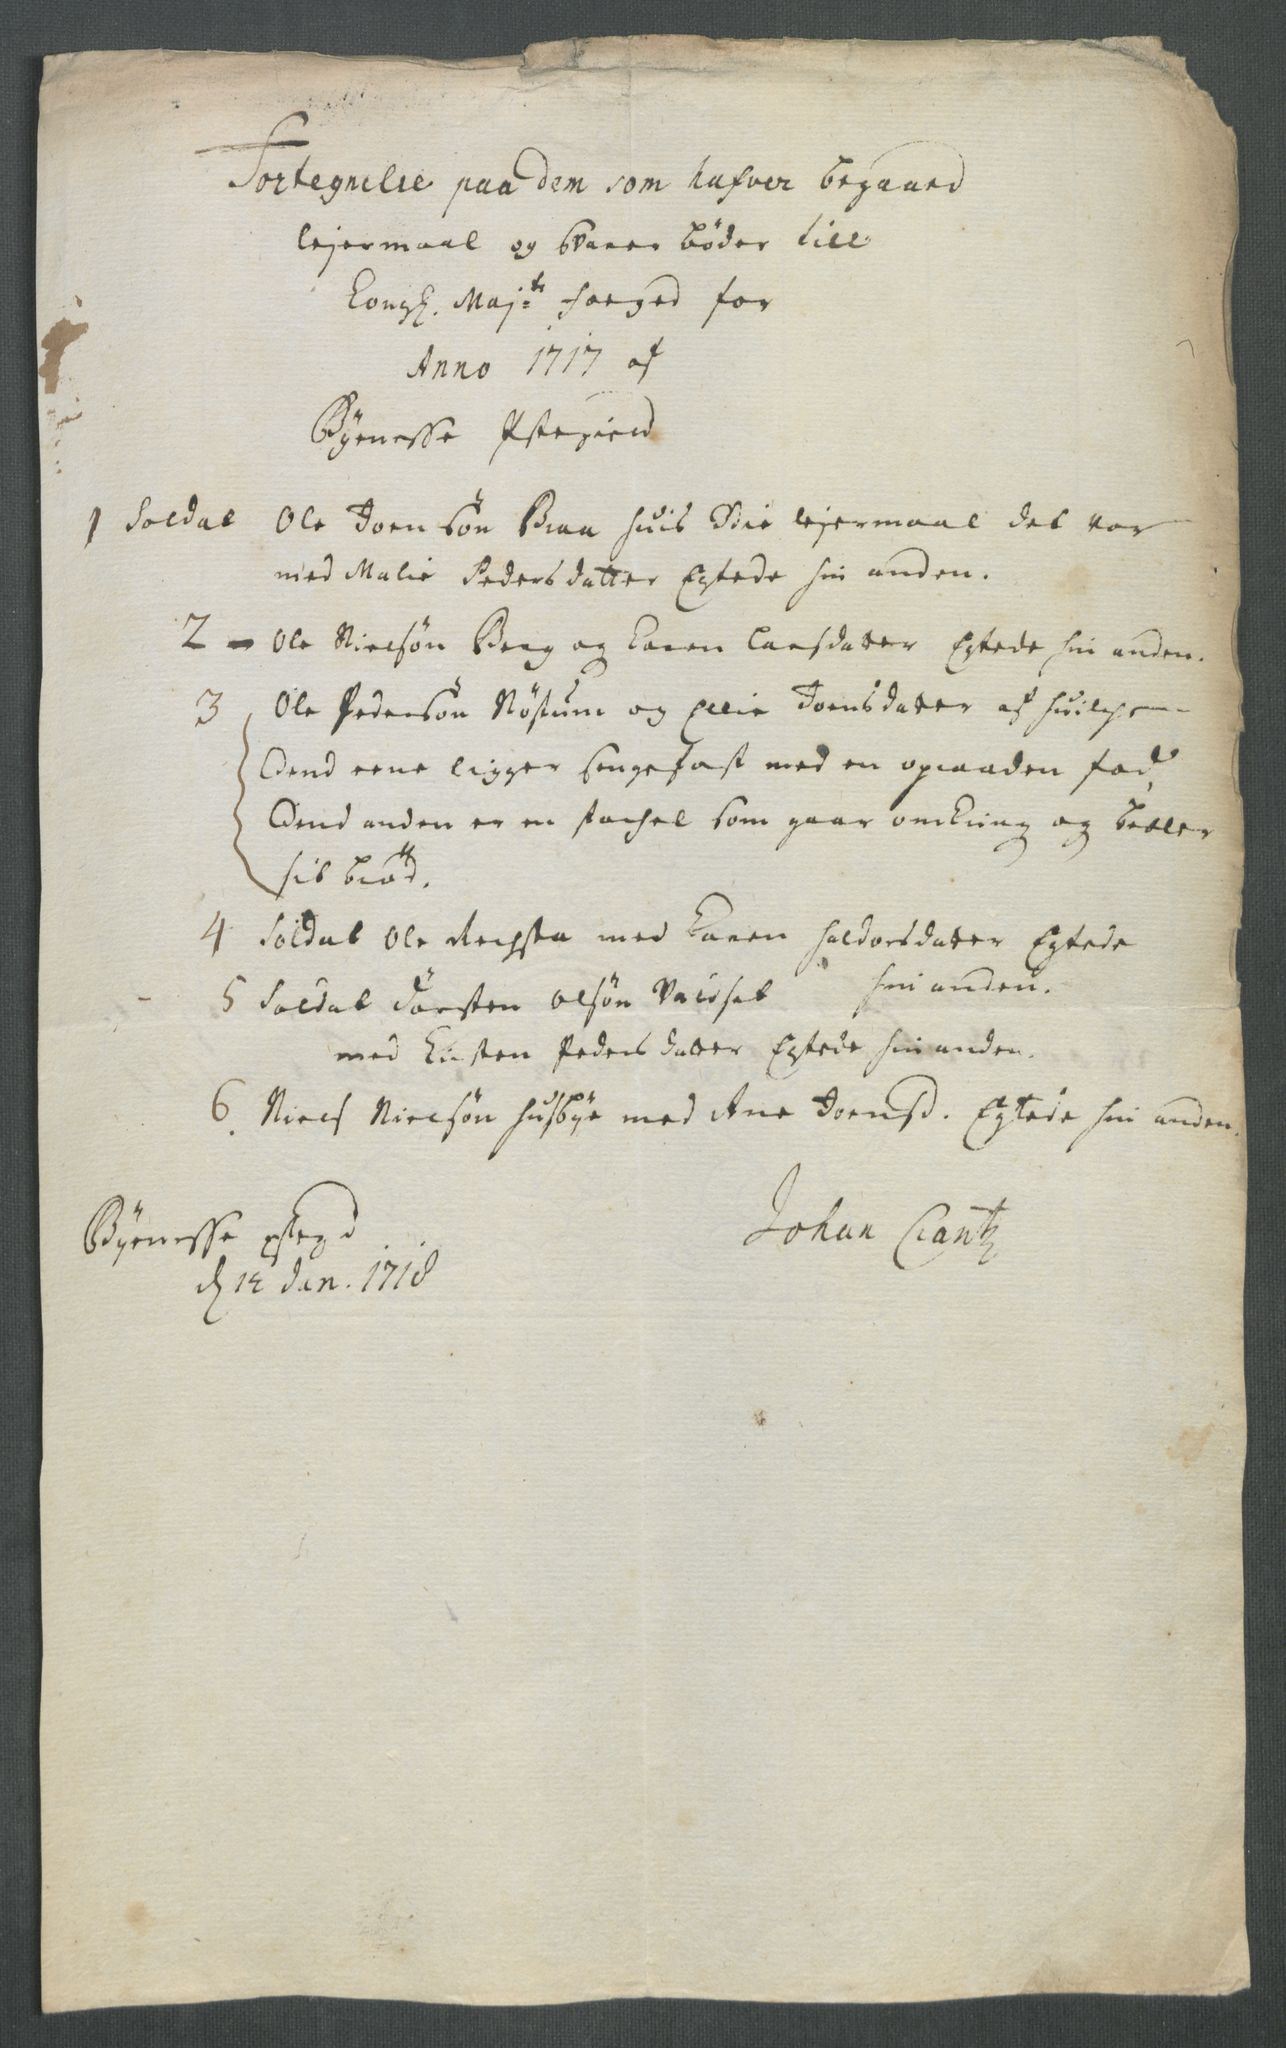 Fortegnelse paa dem som hafver begaaed
lejermaal og svarer bøder till
Kongl. Maj:ts foeged for
Anno 1717 af
Byenesse Pstegield
1 Soldat Ole Joensøn Braa huis 3die lejermaal det var
med Malie Pedersdatter Egtede hin anden.
2 - Ole Nielsøn Berg og Karen Larsdatter Egtede hin anden.
3 Ole Pedersøn Røstum og Ellie Joensdatter af huilche
dend eene ligger sengefast med en opraaden fod,
dend anden er en stachel som gaar omkring og betler
sit brød.
4 Soldat Ole Rechsta med Karen Haldorsdatter Egtede
hin anden.
5 Soldat Torsten Olsøn
med Kirsten Pedersdatter Egtede hin anden.
6. Niels Nielsøn Husbye med Ane Joensd. Egtede hin anden.
Byenesse pstegd
d 12 Jan. 1718
Johan Crantz